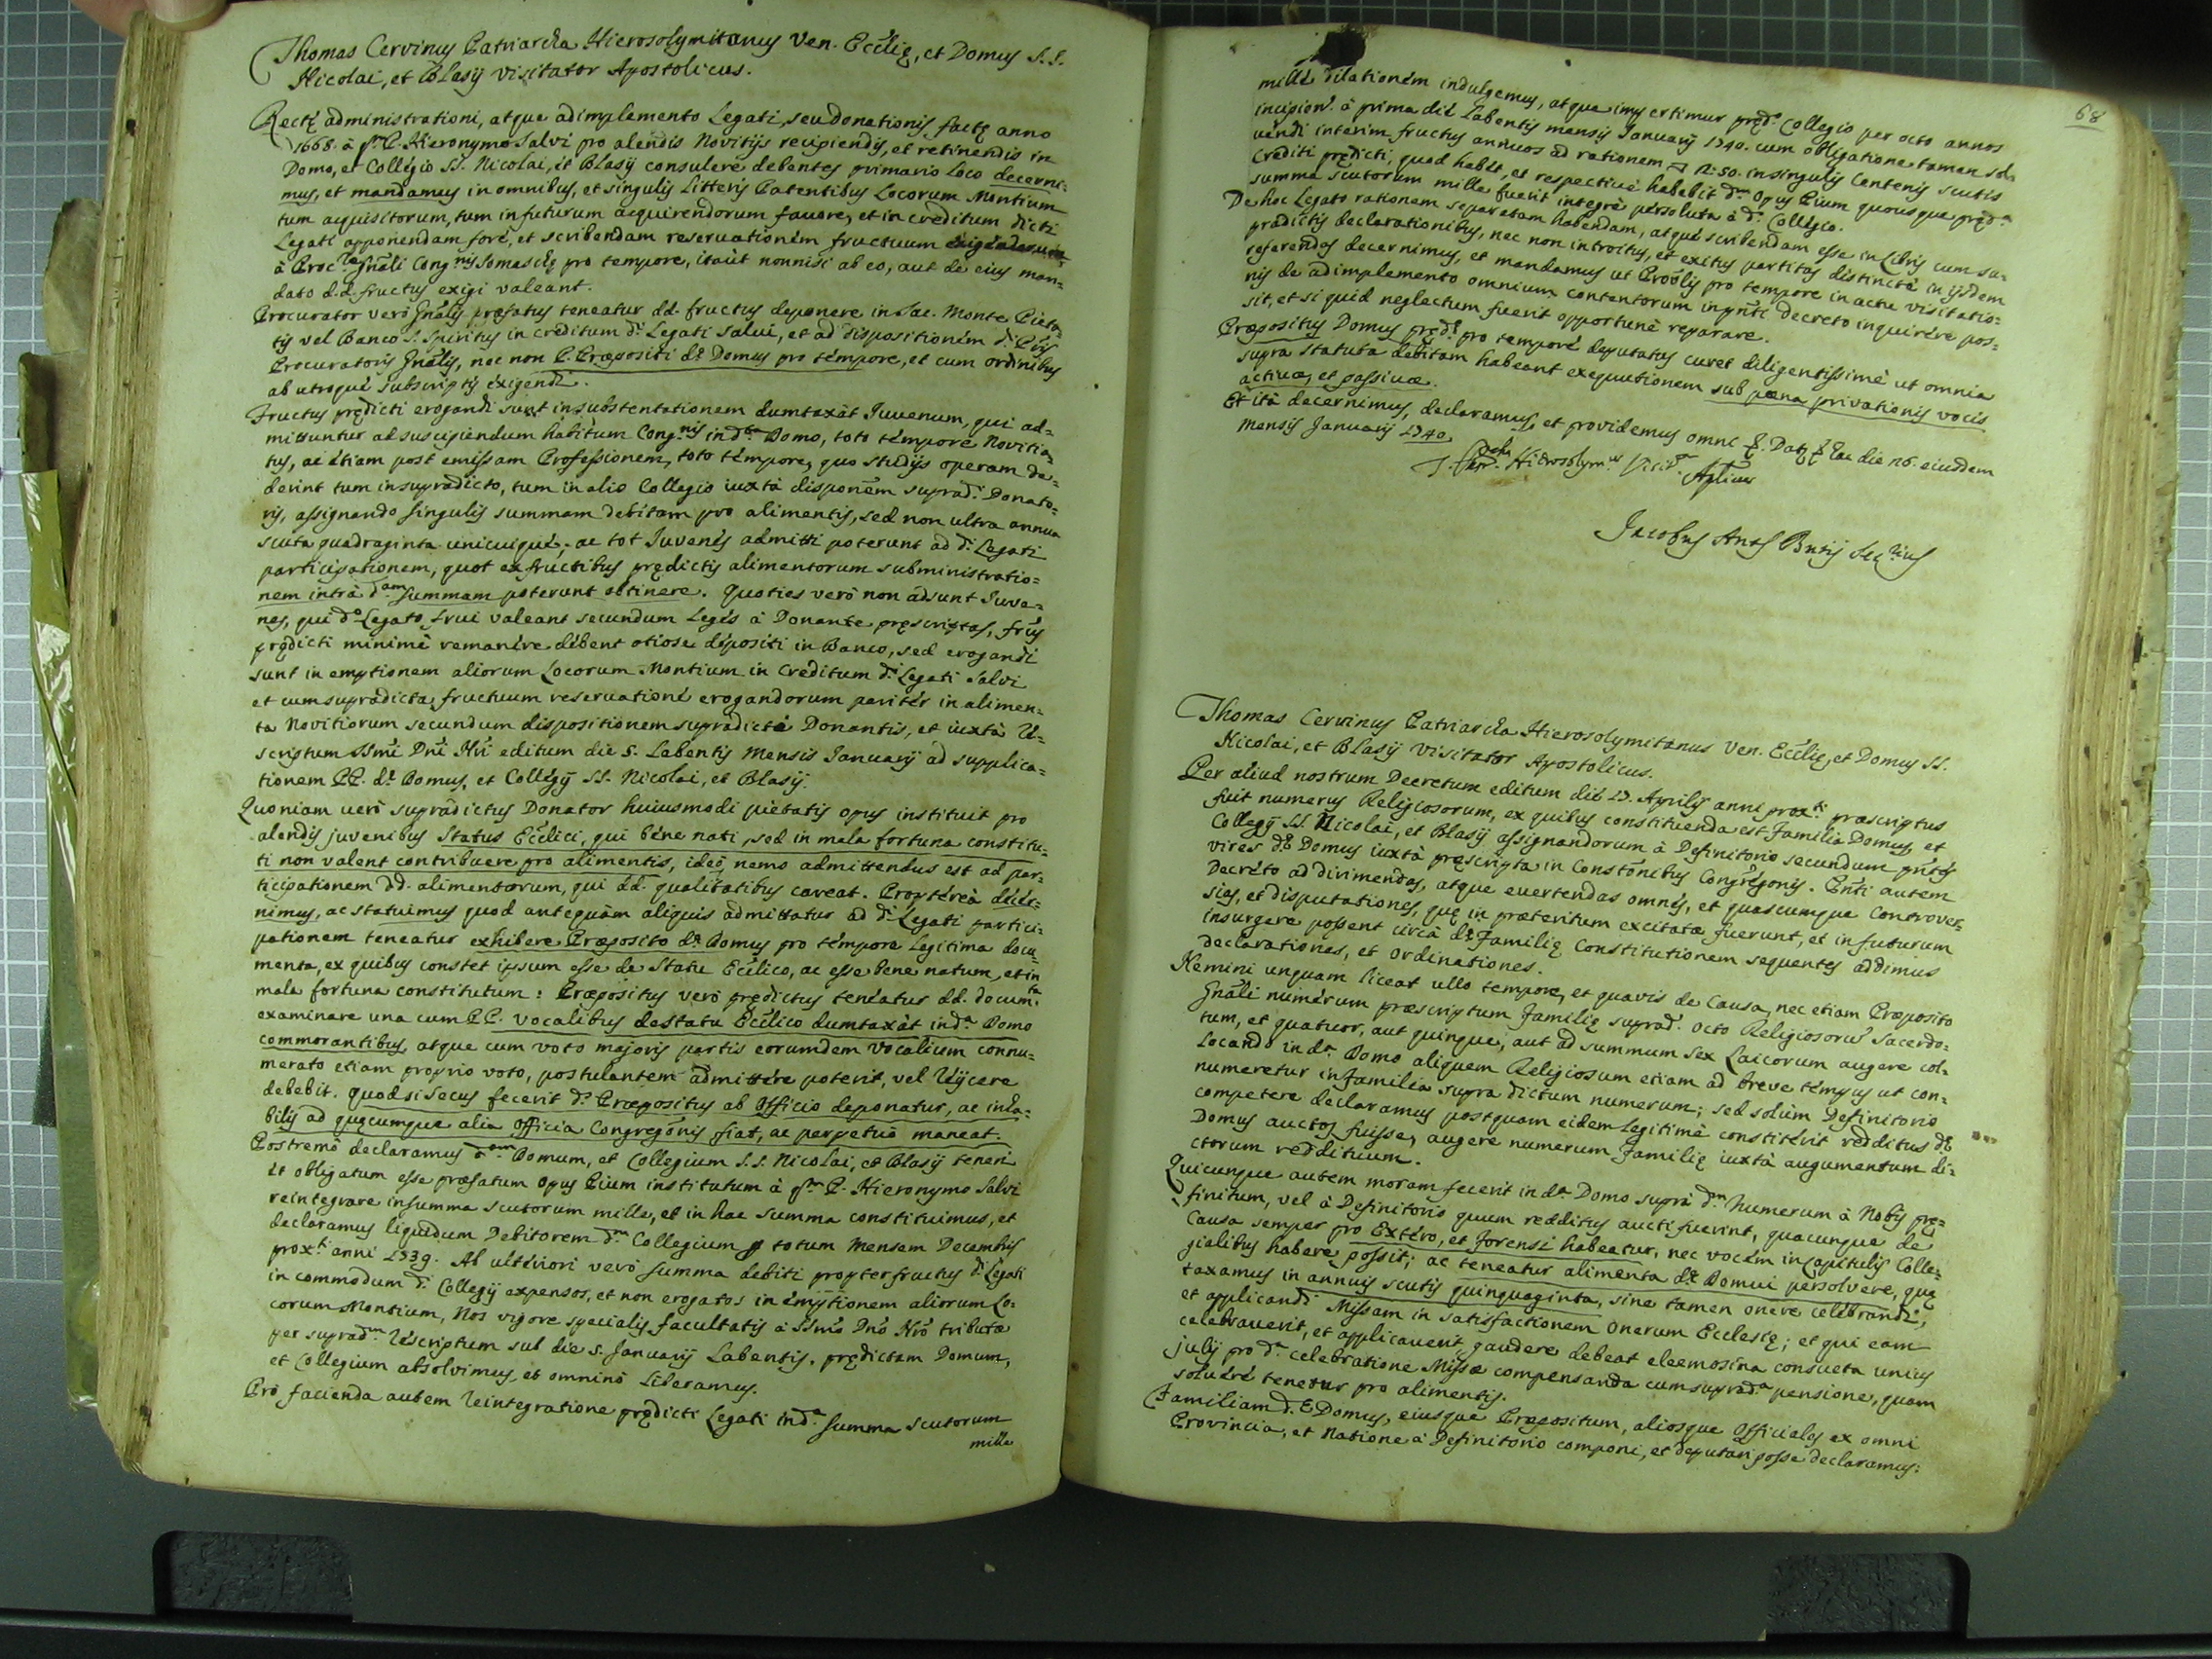 Thomas Cervinus Patriarcha Hierosolymitanus Ven. Eccliæ, et Domus S.S.
Nicolai, et Blasij Visitator Apostolicus.
Rectę administrationi, atque adimplemento Legati, seu donationis factę anno
1668. à qm P. Hieronymo Salvi pro alendis Novitijs recipiendis, et retinendis in
Domo, et Collegio SS. Nicolai, et Blasij consulere debentes primario loco decerni=
mus, et mandamus in omnibus, et singulis Litteris Patentibus Locorum Montium
tum acquisitorum, tum in futurum acquirendorum favore, et in creditum dicti
Legati apponendam fore, et scribendam reservationem fructuum exigendorum
à Procre Gnali Congnis Somaschę pro tempore, itaut nonnisi ab eo, aut de eius man=
dato d.d. fructus exigi valeant.
Procurator verò Gnalis præfatus teneatur dd. fructus deponere in Sac. Monte Pieta=
tis vel Banco S. Spiritus in creditum di Legati Salvi, et ad dispositionem di Pris
Procuratoris Gnalis, nec non P. Præpositi dę Domus pro tempore, et cum ordinibus
ab utroque subscriptis exigendi.
Fructus prędicti erogandi sunt in substentationem dumtaxàt Iuvenum, qui ad=
mittuntur ad suscipiendum habitum Congnis in dta Domo, toto tempore Novitia=
tus, ac etiam post emissam Professionem, toto tempore, quo studijs operam de=
derint tum in supradicto, tum in alio Collegio iuxtà disponem supradi Donato=
ris, assignando singulis summam debitam pro alimentis, sed non ultra annua
scuta quadraginta unicuique; ac tot Iuvenes admitti poterunt ad di Legati
participationem, quot ex fructibus prędictis alimentorum subministratio=
nem intrà dam summam poterunt obtinere. Quoties verò non adsunt Iuve=
nes, qui do Legato frui valeant secundum Leges à Donante pręscriptas, frus
prędicti minimè remanere debent otiose depositi in Banco, sed erogandi
sunt in emptionem aliorum Locorum Montium in creditum di Legati Salvi
et cum supradicta fructuum reservatione erogandorum pariter in alimen=
ta Novitiorum secundum dispositionem supradicti Donantis, et iuxtà Re=
scriptum SSmi Dni Nri editum die 5. Labentis Mensis Januarij ad supplica=
tionem PP. dę Domus, et Collegij SS. Nicolai, et Blasij.
Quoniam verò supradictus Donator huiusmodi pietatis opus instituit pro
alendis juvenibus Status Ecclici, qui bene nati, sed in mala fortuna constitu=
ti non valent contribuere pro alimentis, ideò nemo admittendus est ad par=
ticipationem dd. alimentorum, qui dd. qualitatibus careat. Proptereà decer=
nimus, ac statuimus quod antequàm aliquis admittatur ad di Legati partici=
pationem teneatur exhibere Præposito dę Domus pro tempore legitima docu=
menta, ex quibus constet ipsum esse de Statu Ecclico, ac esse bene natum, et in
mala fortuna constitutum: Præpositus verò prędictus teneatur dd. documta
examinare una cum PP. vocalibus de Statu Ecclico dumtaxàt in da Domo
commorantibus, atque cum voto majoris partis eorumdem Vocalium connu=
merato etiam proprio voto, postulantem admittere poterit, vel rejicere
debebit. Quod si secus fecerit ds Præpositus ab Officio deponatur, ac inha=
bilis ad quęcumque alia Officia Congregonis fiat, ac perpetuò maneat.
Postremò declaramus dam Domum, et Collegium S.S. Nicolai, et Blasij teneri
et obligatum esse præfatum Opus Pium institutum à qm P. Hieronymo Salvi
reintegrare in summa scutorum mille, et in hac summa constituimus, et
declaramus liquidum Debitorem dm Collegium p totum Mensem Decembris
proxi anni 1739. Ab ulteriori verò summa debiti propter fructus di Legati
in commodum di Collegij expensos, et non erogatos in emptionem aliorum Lo=
corum Montium, Nos vigore specialis facultatis à SSmo Dno Nro tributæ
per supradm Rescriptum sub die 5. Januarij Labentis, prędictam Domum,
et Collegium absolvimus, et omninò liberamus.
Prò facienda autem reintegratione prędicti Legati in da summa scutorum
mille
68
mille dilationem indulgemus, atque impertimur prędo Collegio per octo annos
incipien. à prima die Labentis mensis Januarij 1740. cum obligatione tamen sol=
vendi interim fructus annuos ad rationem 2:50. in singulis centenis scutis
Crediti prędicti, quod habet, et respectivè habebit dm Opus Pium quousque pręda
summa scutorum mille fuerit integrè persoluta à do Collegio.
De hoc Legato rationem separatam habendam, atque scribendam esse in Libris cum su=
pradictis declarationibus, nec non introitus, et exitus partitas distinctè in ijsdem
referendas decernimus, et mandamus ut Pròòlis pro tempore in actu visitatio=
nis de adimplemento omnium contentorum in pñti decreto inquirere pos=
sit, et si quid neglectum fuerit opportunè reparare.
Præpositus Domus prędę pro tempore deputatus curet diligentissimè ut omnia
supra statuta debitam habeant exequutionem sub pæna privationis vocis
activæ, et passivæ.
Et ità decernimus, declaramus, et providemus omni &. Datę & hac die 26. eiusdem
mensis Januarij 1740.
T. Patr. Hierosolymus Visitor Aplicus
Jacobus Ants Butij Secrius
Thomas Cervinus Patriarcha Hierosolymitanus Ven. Eccliæ, et Domus SS.
Nicolai, et Blasij Visitator Apostolicus.
Per aliud nostrum Decretum editum die 23. Aprilis anni proxi præscriptus
fuit numerus Religiosorum, ex quibus constituenda est Familia Domus, et
Collegij SS. Nicolai, et Blasij assignandorum à Definitorio secundum pñtes
vires dę Domus iuxtà pręscripta in Constonibus Congregonis. Pñti autem
Decreto ad dirimendas, atque evertendas omnes, et quascumque controver=
sias, et disputationes, quę in præteritum excitatæ fuerunt, et in futurum
insurgere possent circà dę Familię Constitutionem sequentes addimus
declarationes, et ordinationes.
Nemini unquam liceat ullo tempore, et quavis de causa, nec etiam Præposito
Gnali numerum præscriptum Familię suprad. octo Religiosorũ Sacerdo=
tum, et quatuor, aut quinque, aut ad summum sex Laicorum augere col=
locando in da Domo aliquem Religiosum etiam ad breve tempus ut con=
numeretur in familia supra dictum numerum; sed solùm Definitorio
competere declaramus postquam eidem legitimè constiterit redditus dę
Domus auctos fuisse, augere numerum Familię iuxtà augumentum di=
ctorum reddituum.
Quicunque autem moram fecerit in da Domo suprà dm Numerum à Nobis prę=
finitum, vel à Definitorio quum redditus aucti fuerint, quacunque de
Causa semper pro Extero, et Forensi habeatur, nec vocem in Capitulis Colle=
gialibus habere possit; ac teneatur alimenta dę Domui persolvere, quę
taxamus in annuis scutis quinquaginta, sine tamen onere celebrandi,
et applicandi Missam in satisfactionem onerum Ecclesię; et qui eam
celebraverit, et applicaverit, gaudere debeat eleemosina consueta unius
julij pro da celebratione Missæ compensanda cum suprada pensione, quam
solvere tenetur pro alimentis.
Familiam d.ę Domus, eiusque Præpositum, aliosque Officiales ex omni
Provincia, et Natione à Definitorio componi, et deputari posse declaramus: